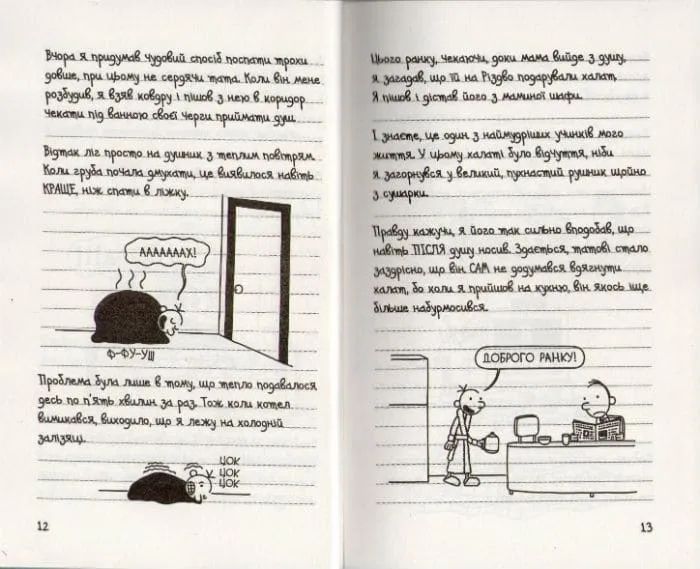 Вчора я придумав чудовий спосіб поспати трохи
довше, при цьому не сердячи тата. Коли він мене
розбудив, я взяв ковдру і пішов з нею в коридор
чекати під ванною своєї черги приймати душ.
Відтак ліг просто на душник з теплим повітрям.
Коли груба почала дмухати, це виявилося навіть
КРАЩЕ, ніж спати в ліжку.
АААААААХ!
Ф-ФУ-УШ
Проблема була лише в тому, що тепло подавалося
десь по п'ять хвилин за раз. Тож коли котел
вимикався, виходило, що я лежу на холодній
залізяці.
ЦОК
ЦОК
ЦОК
12
Цього ранку, чекаючи, доки мама вийде з душу,
я загадав, що їй на Різдво подарували халат.
Я пішов і дістав його з маминої шафи.
І знаєте, це один з наймудріших учинків мого
життя. У цьому халаті було відчуття, ніби
я загорнувся у великий, пухнастий рушник щойно
з сушарки.
Правду кажучи, я його так сильно вподобав, що
навіть ПІСЛЯ душу носив. Здається, татові стало
заздрісно, що він САМ не додумався вдягнути
халат, бо коли я прийшов на кухню, він якось іще
більше набурмосився.
ДОБРОГО РАНКУ!
13